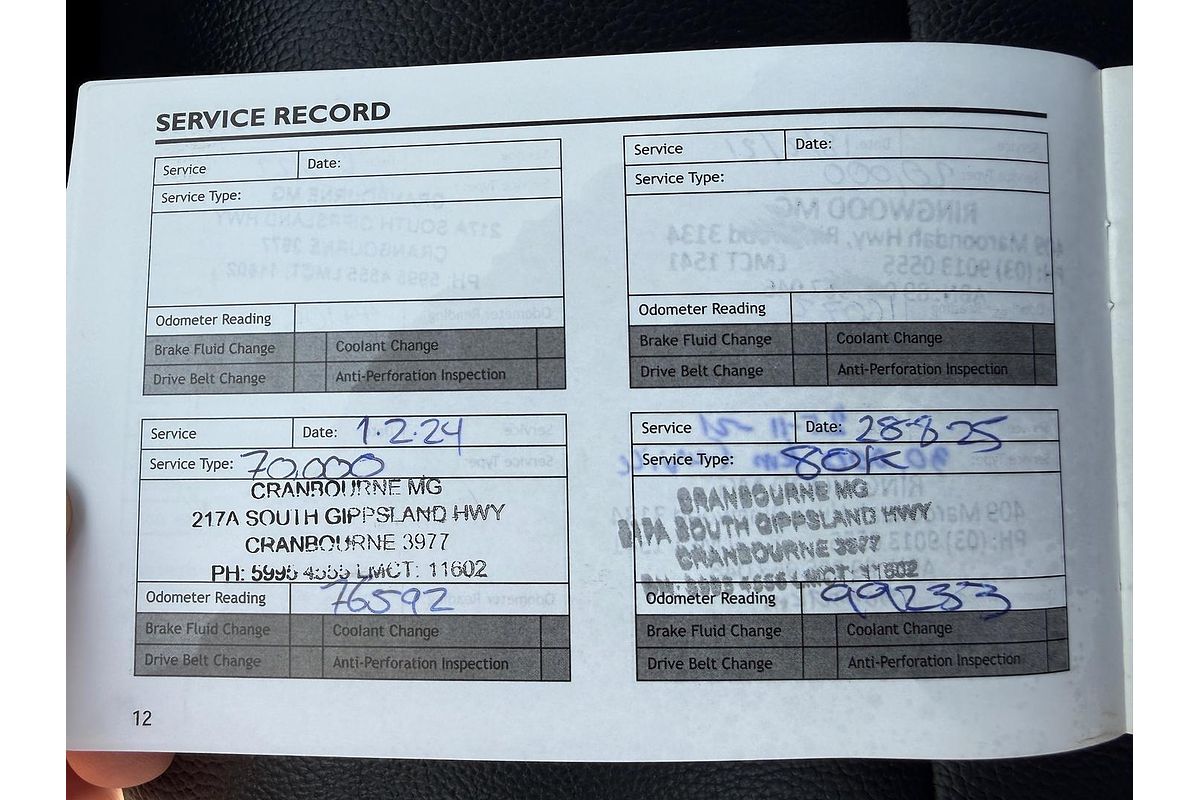 SERVICE RECORD
Service Date:
Service Type:
Odometer Reading
Brake Fluid Change Coolant Change
Drive Belt Change Anti-Perforation Inspection
Service Date:
Service Type:
Odometer Reading
Brake Fluid Change Coolant Change
Drive Belt Change Anti-Perforation Inspection
Service Date: 1.2.24
Service Type: 70,000
CRANBOURNE MG
217A SOUTH GIPPSLAND HWY
CRANBOURNE 3977
PH: 5995 4555 LMCT: 11602
Odometer Reading 76592
Brake Fluid Change Coolant Change
Drive Belt Change Anti-Perforation Inspection
Service Date: 28-8-25
Service Type: 80K
CRANBOURNE MG
217A SOUTH GIPPSLAND HWY
CRANBOURNE 3977
PH: 5995 4555 LMCT: 11602
Odometer Reading 99233
Brake Fluid Change Coolant Change
Drive Belt Change Anti-Perforation Inspection
12